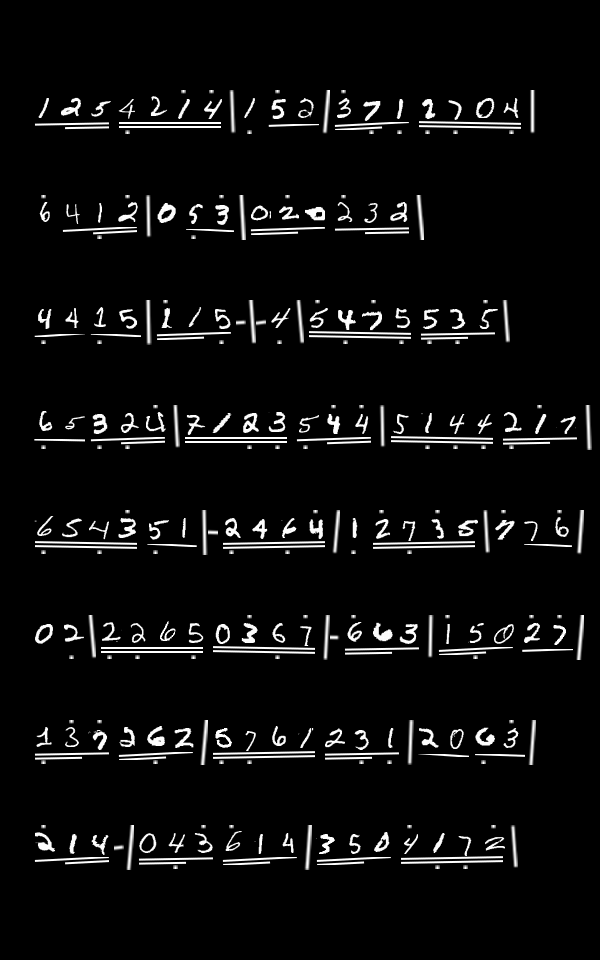 1 2 5 4 2 1 4 | 1 5 2 | 3 7 1 2 7 0 4 |
6 4 1 2 | 0 5 3 | 0 2 0 2 3 2 |
4 4 1 5 | 1 1 5 - | - 4 | 5 4 7 5 5 3 5 |
6 5 3 2 4 | 7 1 2 3 5 4 4 | 5 1 4 4 2 1 7 |
6 5 4 3 5 1 | - 2 4 6 4 | 1 2 7 3 5 | 7 7 6 |
0 2 | 2 2 6 5 0 3 6 7 | - 6 6 3 | 1 5 0 2 7 |
1 3 7 2 6 2 | 5 7 6 1 2 3 1 | 2 0 6 3 |
2 1 4 - | 0 4 3 6 1 4 | 3 5 0 4 1 7 2 |